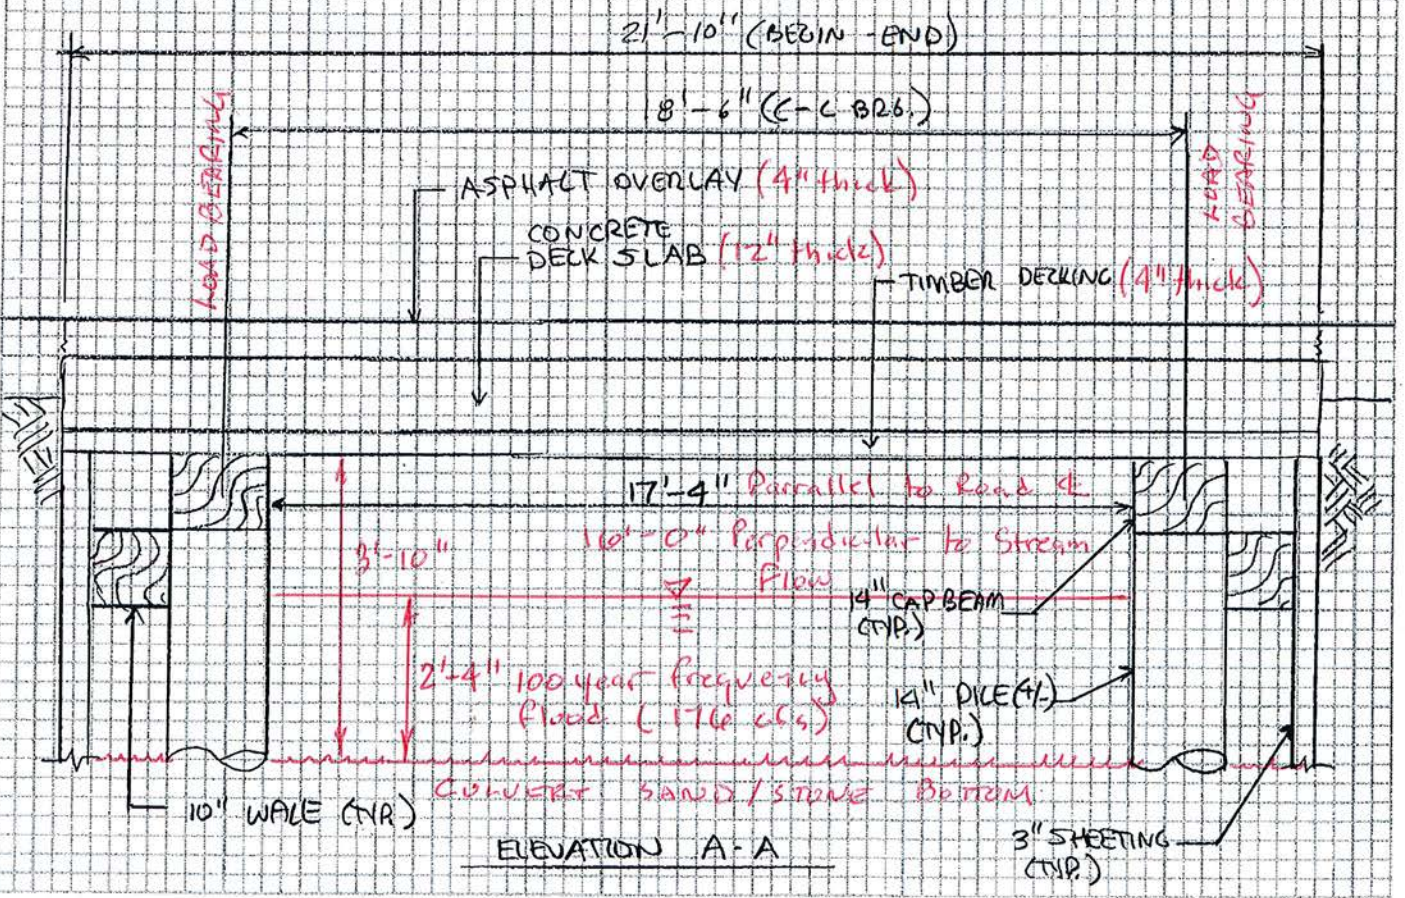 21'-10" (BEGIN-END)
8'-6" (C-C BRG.)
LOAD BEARING
LOAD
BEARING
ASPHALT OVERLAY (4" thick)
CONCRETE
DECK SLAB (12" thick)
TIMBER DECKING (4" thick)
17'-4" Parrallel to Road ℄
16'-0" Perpendicular to Stream
Flow
3'-10"
14" CAP BEAM
(TYP.)
2'-4" 100 year frequency
flood (176 cfs)
14" PILE (+/-)
(TYP.)
CULVERT SAND/STONE BOTTOM
10" WALE (TYP.)
3" SHEETING
(TYP.)
ELEVATION A-A